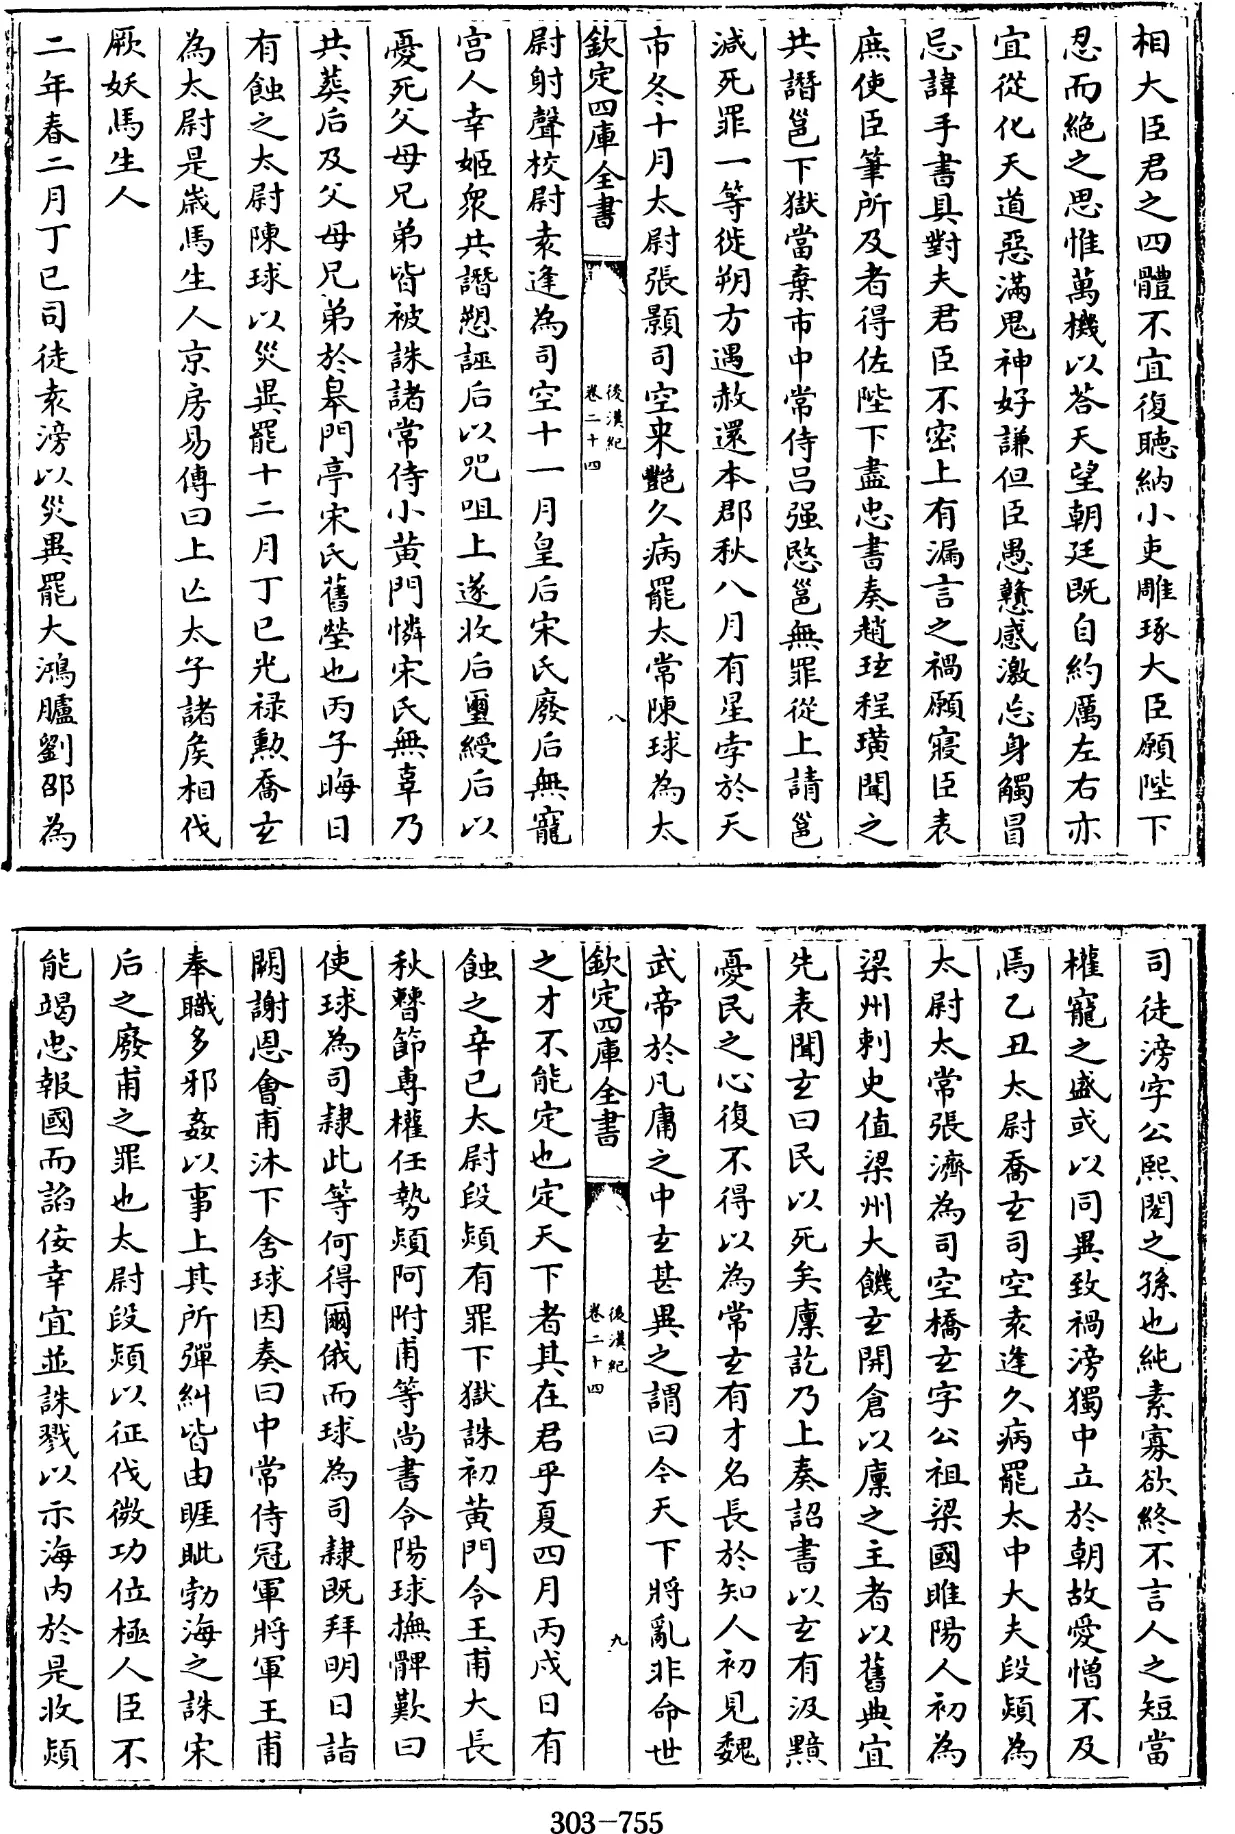 相大臣君之四體不宜復聽納小吏雕琢大臣願陛下
忍而絶之思惟萬機以答天望朝廷既自約厲左右亦
宜從化天道惡滿鬼神好謙但臣愚戇感激忘身觸冒
忌諱手書具對夫君臣不密上有漏言之禍願寢臣表
庶使臣筆所及者得佐陛下盡忠書奏趙玹程璜聞之
共譖邕下獄當棄市中常侍吕强愍邕無罪從上請邕
減死罪一等徙朔方遇赦還本郡秋八月有星孛於天
市冬十月太尉張顥司空来艷久病罷太常陳球為太
欽定四庫全書
後漢紀
卷二十四
八
尉射聲校尉袁逢為司空十一月皇后宋氏廢后無寵
宫人幸姬衆共譖愬誣后以咒咀上遂收后璽綬后以
憂死父母兄弟皆被誅諸常侍小黄門憐宋氏無辜乃
共葬后及父母兄弟於皋門亭宋氏舊塋也丙子晦日
有蝕之太尉陳球以災異罷十二月丁巳光禄勲喬玄
為太尉是歳馬生人京房易傳曰上亡太子諸侯相伐
厥妖馬生人
二年春二月丁巳司徒袁滂以災異罷大鴻臚劉邵為
司徒滂字公熙閎之孫也純素寡欲終不言人之短當
權寵之盛或以同異致禍滂獨中立於朝故愛憎不及
焉乙丑太尉喬玄司空袁逢久病罷太中大夫段熲為
太尉太常張濟為司空橋玄字公祖梁國睢陽人初為
梁州刺史值梁州大饑玄開倉以廩之主者以舊典宜
先表聞玄曰民以死矣廩訖乃上奏詔書以玄有汲黯
憂民之心復不得以為常玄有才名長於知人初見魏
武帝於凡庸之中玄甚異之謂曰今天下將亂非命世
欽定四庫全書
後漢紀
卷二十四
九
之才不能定也定天下者其在君乎夏四月丙戌日有
蝕之辛巳太尉段熲有罪下獄誅初黄門令王甫大長
秋瞽節専權任勢熲阿附甫等尚書令陽球撫髀歎曰
使球為司隷此等何得爾俄而球為司隷既拜明日詣
闕謝恩會甫沐下舍球因奏曰中常侍冠軍將軍王甫
奉職多邪姦以事上其所彈糾皆由睚眦勃海之誅宋
后之廢甫之罪也太尉段熲以征伐微功位極人臣不
能竭忠報國而諂佞幸宜並誅戮以示海内於是收熲
303-755